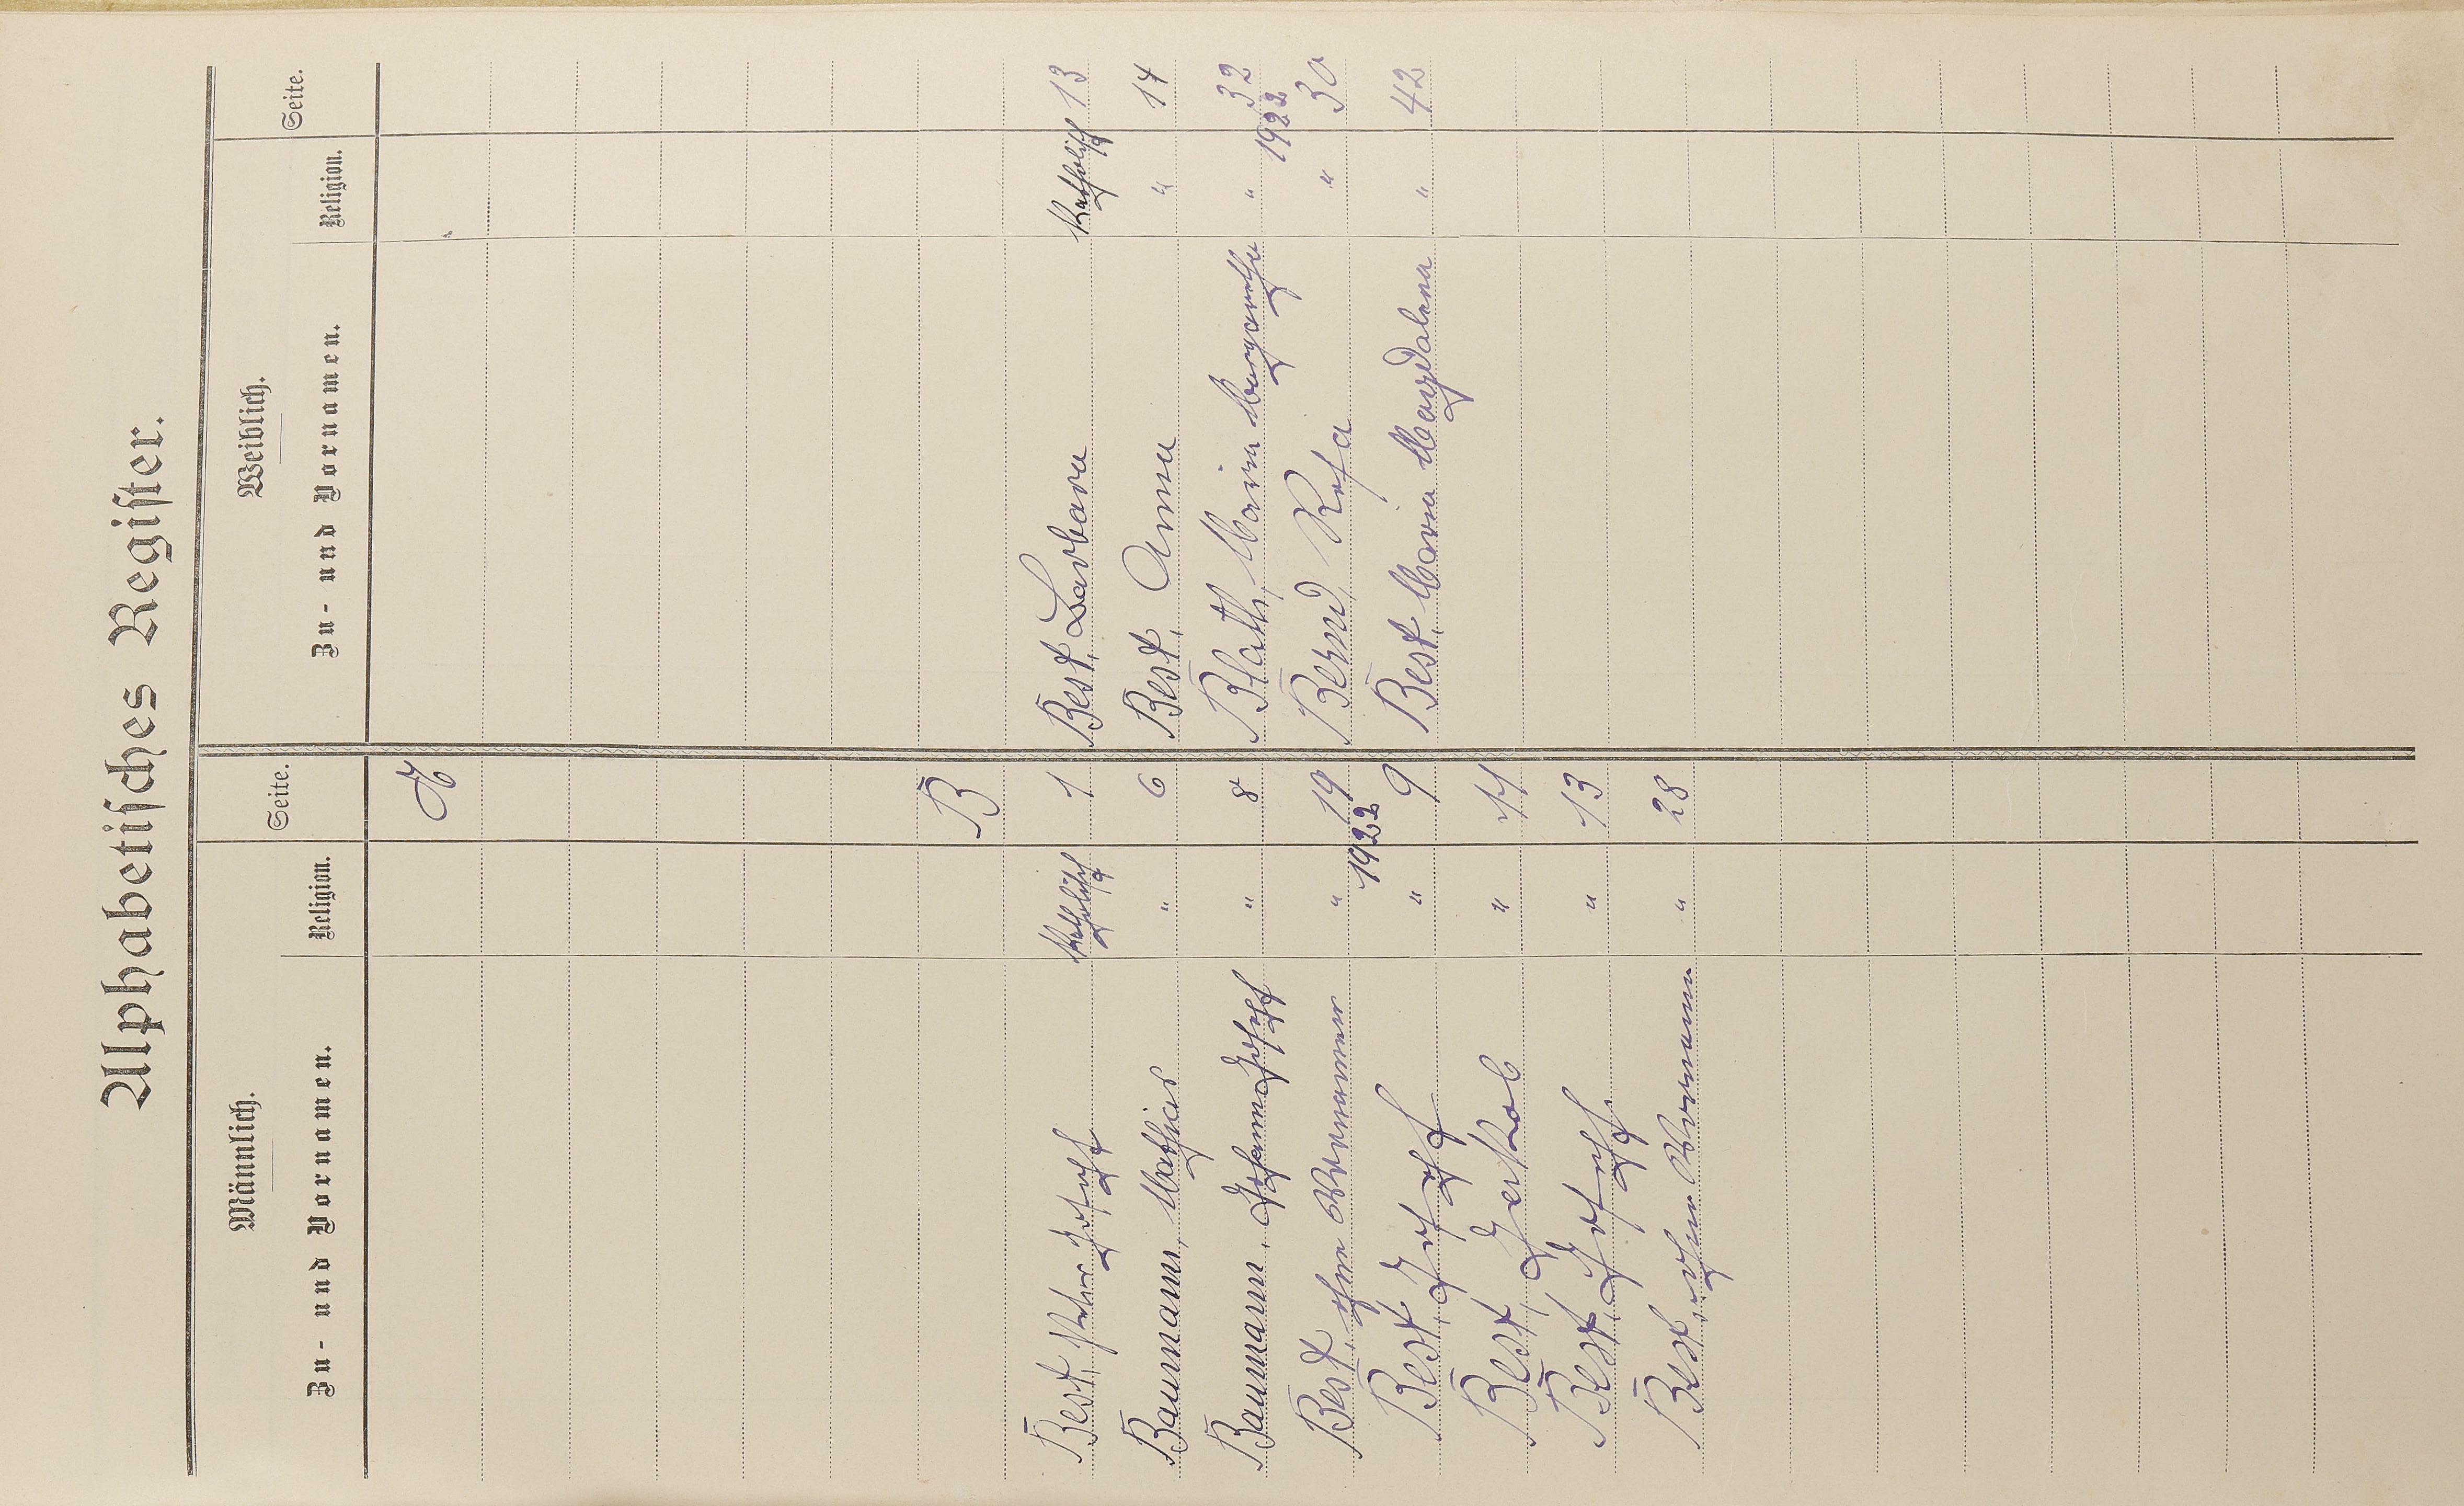 Alphabetisches Register.
Männlich. Weiblich.
Zu- und Vornamen. Religion. Seite. Zu- und Vornamen. Religion. Seite.
A
B
Best, Peter Josef Katholisch 1 Best, Barbara Katholisch 13
Baumann, Mathias " 6 Best, Anna " 14
Baumann, Johann Josef " 8 Blath, Maria Margaretha " 32
1922 1922
Best, ohne Vornamen " 19 Bernd, Rosa " 30
Best, Josef " 9 Best, Maria Magdalena " 42
Best, Jakob " 11
Best, Josef " 13
Best, ohne Vornamen " 28